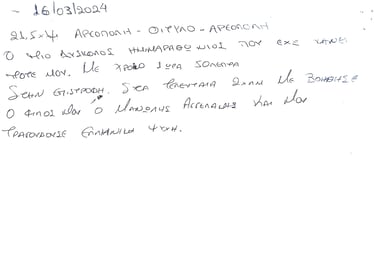 ~ 16/03/2024
21,5-χλμ ΑΡΕΟΠΟΛΗ - ΟΙΤΥΛΟ - ΑΡΕΟΠΟΛΗ
Ο ΠΙΟ ΔΥΣΚΟΛΟΣ ΗΜΙΜΑΡΑΘΩΝΙΟΣ ΠΟΥ ΕΧΩ ΚΑΝΕΙ
ΠΟΤΕ ΜΟΥ. ΜΕ ΧΡΟΝΟ 2 ΩΡΕΣ
ΣΤΗΝ ΕΠΙΣΤΡΟΦΗ. ΣΤΑ ΤΕΛΕΥΤΑΙΑ ΜΕ ΒΟΗΘΗΣΕ
Ο ΦΙΛΟΣ ΜΟΥ Ο ΜΑΝΩΛΗΣ ΚΑΙ ΜΟΥ
ΤΡΑΓΟΥΔΟΥΣΕ ΕΛΛΗΝΙΚΗ ΨΥΧΗ.